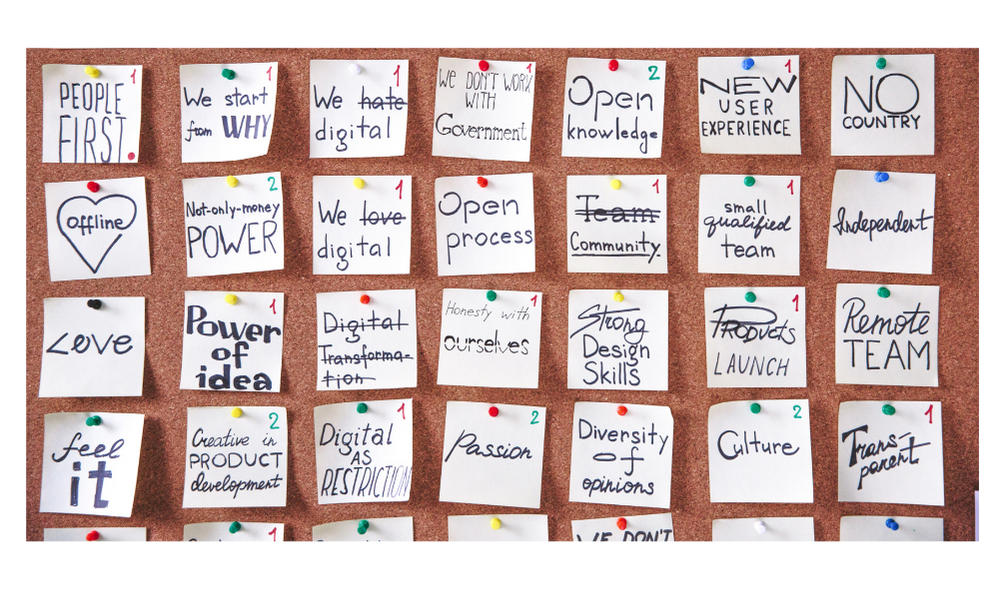 PEOPLE 1
FIRST.
We start 1
from WHY
We hate 1
digital
WE DON'T WORK 1
WITH
Government
Open 2
knowledge
NEW 1
USER
EXPERIENCE
NO
COUNTRY
offline
Not-only-money 2
POWER
We love 1
digital
Open
process
Team 1
Community.
small 1
qualified
team
Independent
Love
Power 1
of
idea
Digital
Transforma-
tion
Honesty with 1
ourselves
Strong
Design
Skills
PRODUCTS 1
LAUNCH
Remote
TEAM
feel
it
Creative in 2
PRODUCT
development
Digital 1
AS
RESTRICTION
Passion 2
Diversity
of
opinions
Culture 2
Trans- 1
parent
1
1
WE DON'T